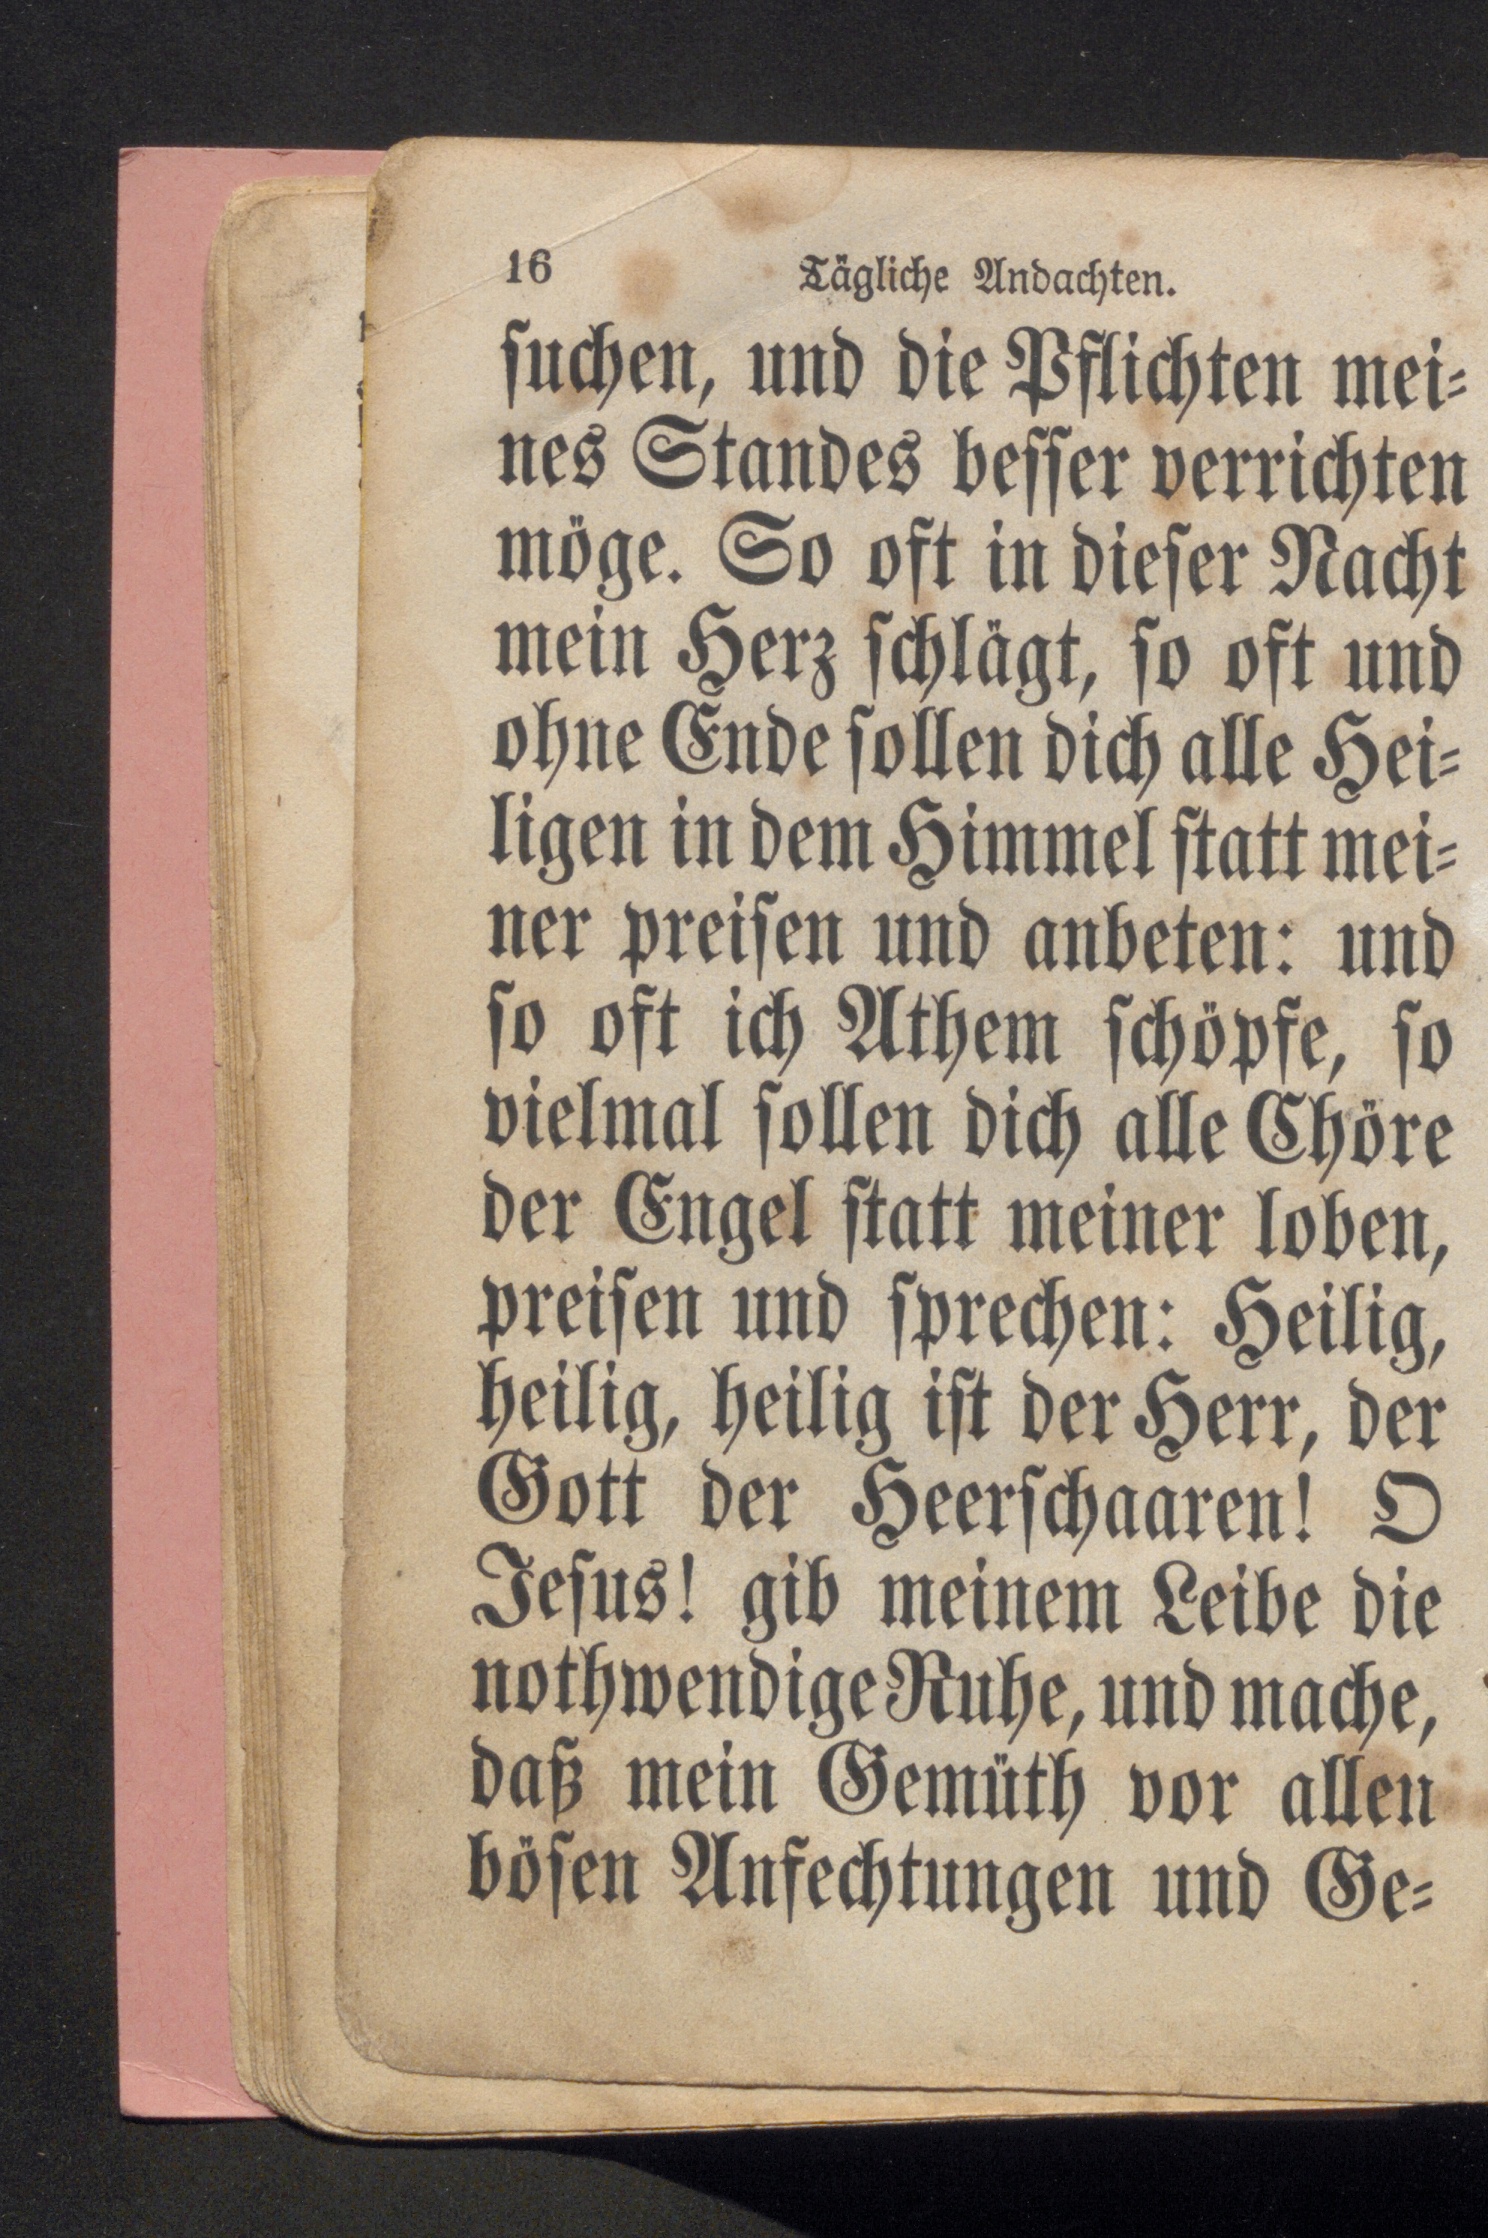 16 Tägliche Andachten.
ſuchen, und die Pflichten mei⸗
nes Standes beſſer verrichten
möge. So oft in dieſer Nacht
mein Herz ſchlägt, ſo oft und
ohne Ende ſollen dich alle Hei⸗
ligen in dem Himmel ſtatt mei⸗
ner preiſen und anbeten: und
ſo oft ich Athem ſchöpfe, ſo
vielmal ſollen dich alle Chöre
der Engel ſtatt meiner loben,
preiſen und ſprechen: Heilig,
heilig, heilig iſt der Herr, der
Gott der Heerſchaaren! O
Jeſus! gib meinem Leibe die
nothwendige Ruhe, und mache,
daß mein Gemüth vor allen
böſen Anfechtungen und Ge⸗